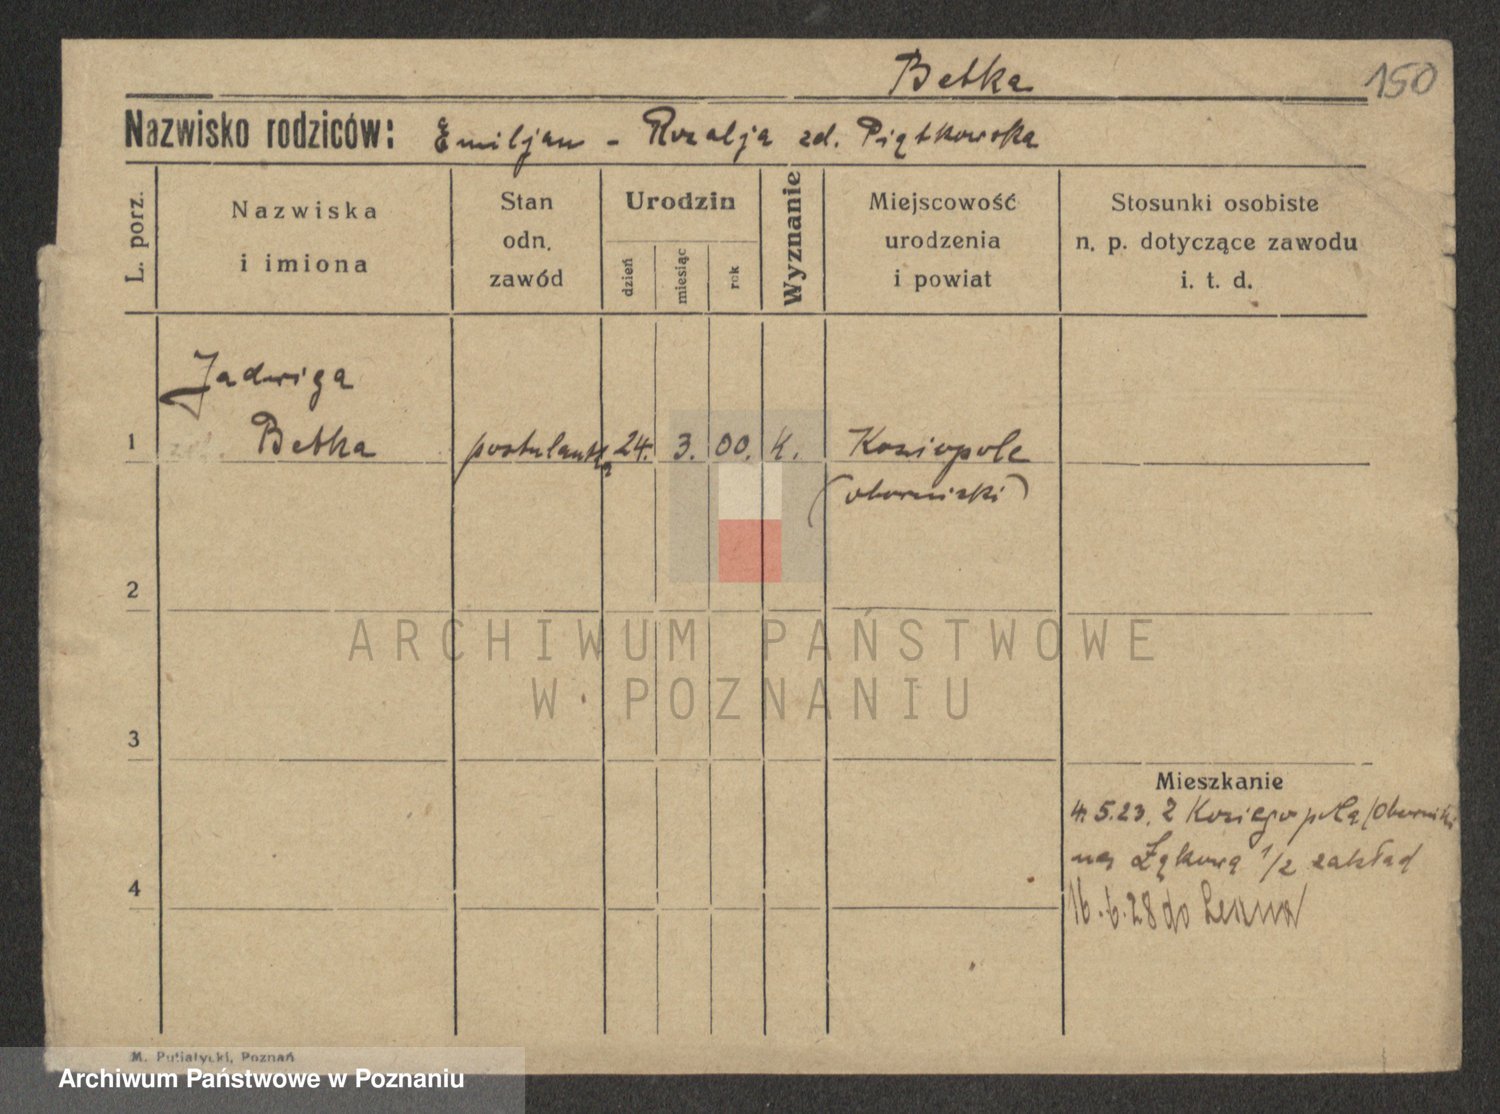 Betka
150
Nazwisko rodziców: Emiljan - Rozalja zd. Piątkowska
L. porz.
Nazwiska
i imiona
Stan
odn.
zawód
Urodzin
dzień
miesiąc
rok
Wyznanie
Miejscowość
urodzenia
i powiat
Stosunki osobiste
n. p. dotyczące zawodu
i. t. d.
Jadwiga
1 Betka postulantka 24. 3. 00. k. Koziopole
(obornicki)
2
ARCHIWUM PAŃSTWOWE
W POZNANIU
3
Mieszkanie
4.5.23. z Koziegopola (Obornicki
na Łąkową 1/2 zakład
4
16.6.28 do Leszna
M. Putiatycki, Poznań
Archiwum Państwowe w Poznaniu